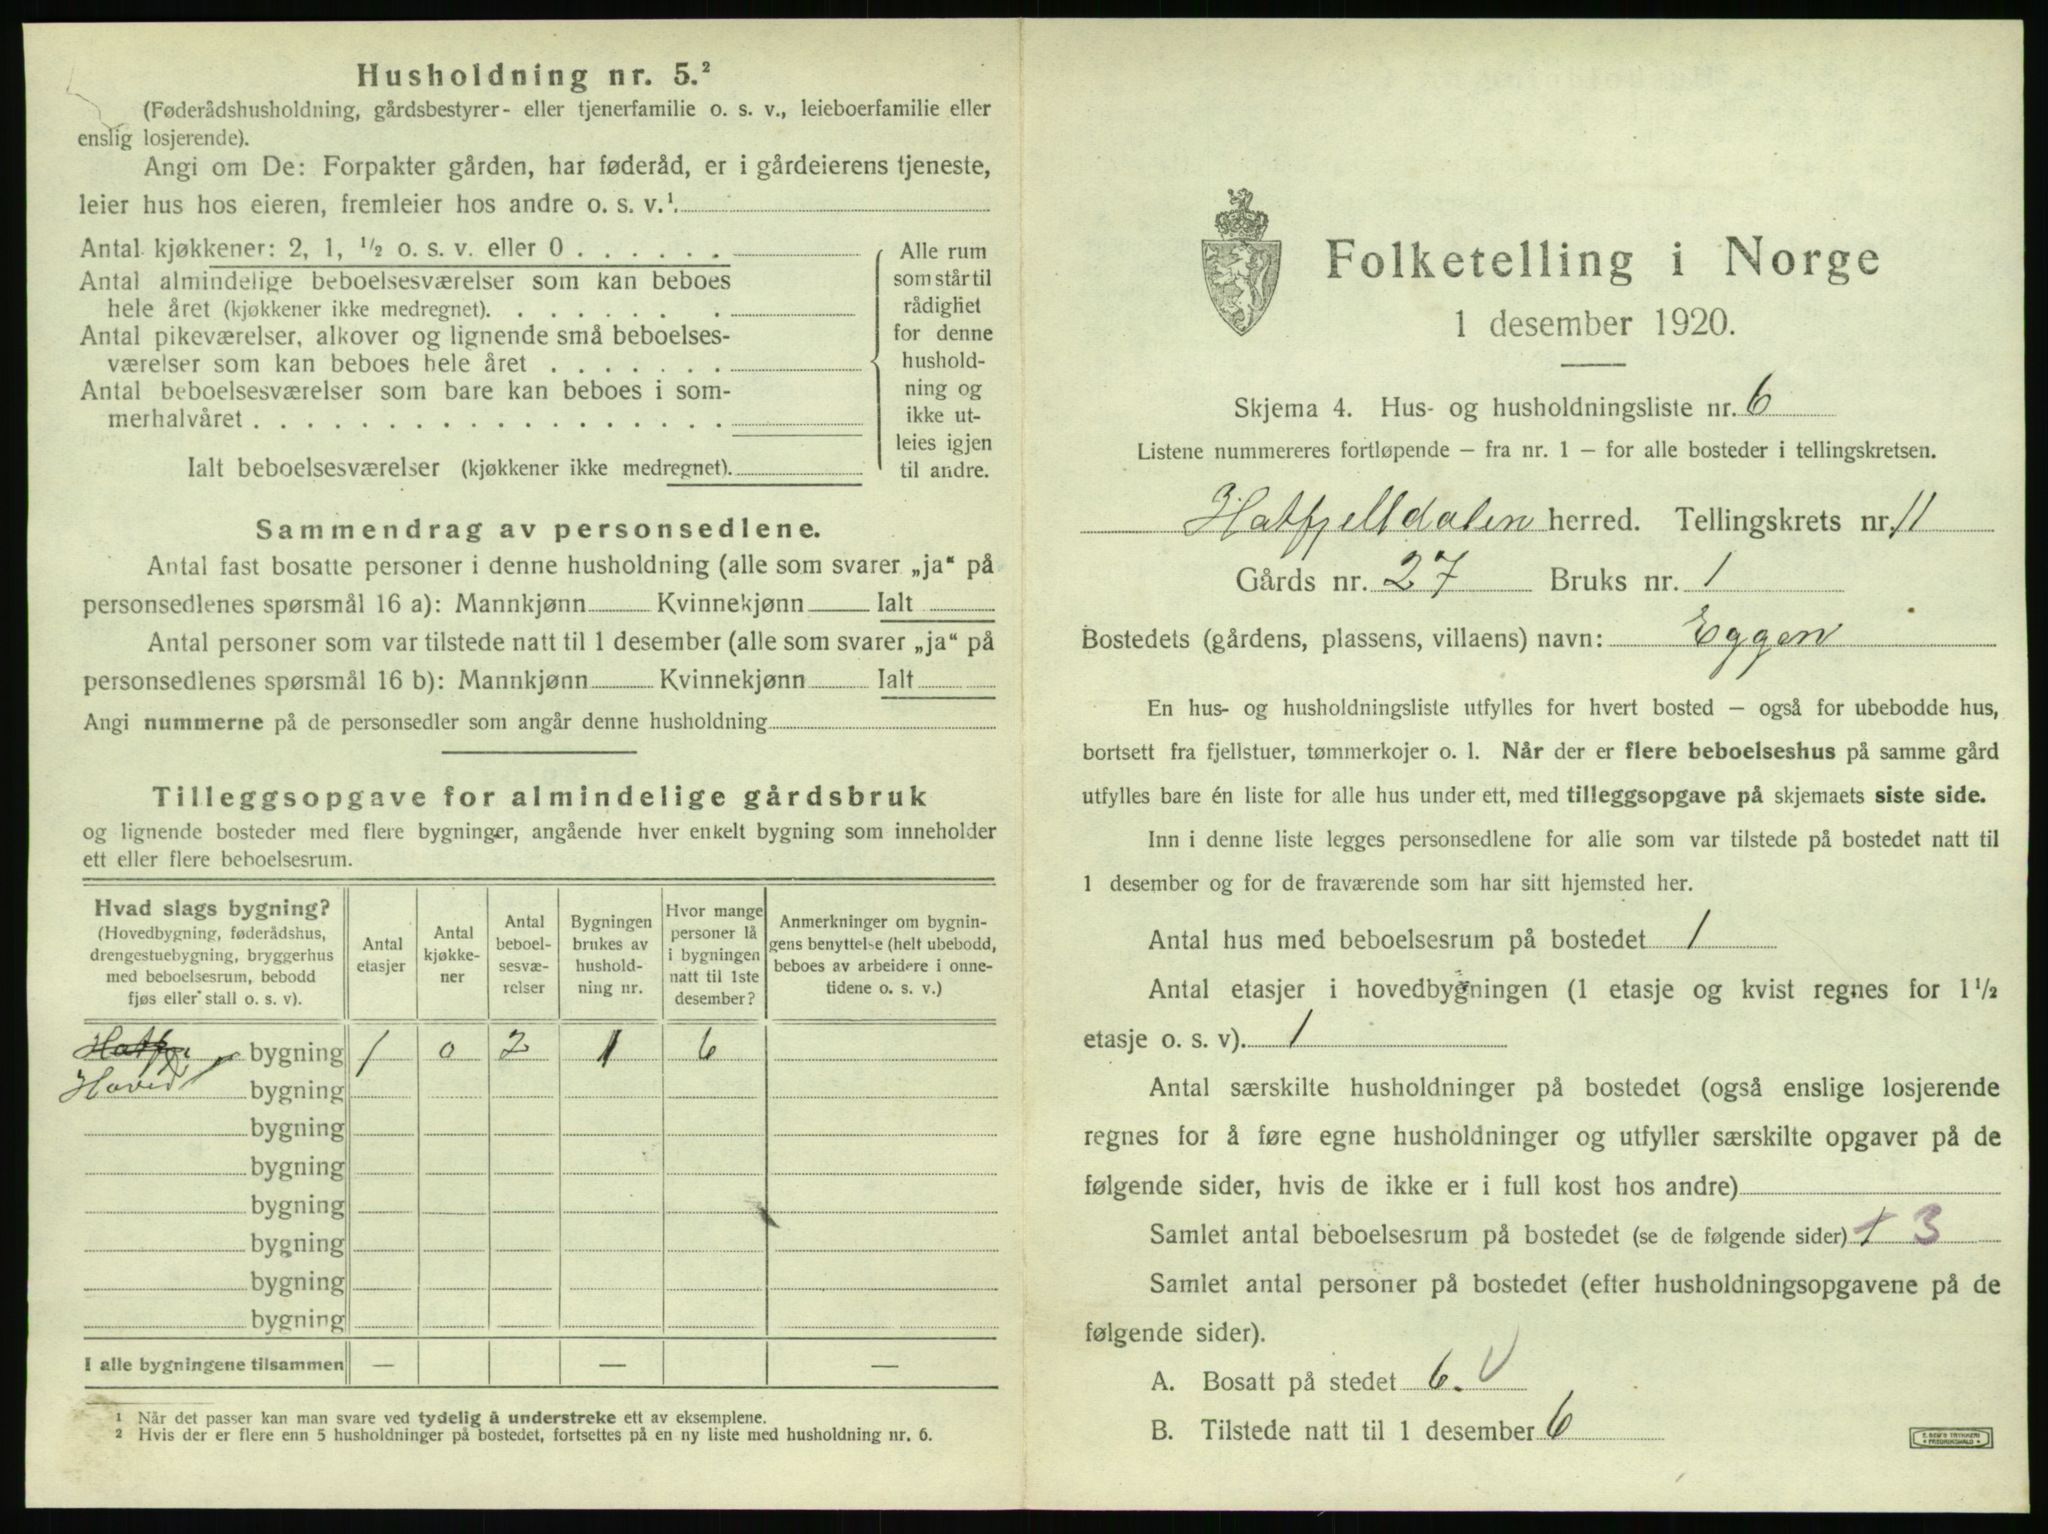 Husholdning nr. 5.²
(Føderådshusholdning, gårdsbestyrer- eller tjenerfamilie o. s. v., leieboerfamilie eller
enslig losjerende).
Angi om De: Forpakter gården, har føderåd, er i gårdeierens tjeneste,
leier hus hos eieren, fremleier hos andre o. s. v.¹
Antal kjøkkener: 2, 1, ½ o. s. v. eller 0 . . . . . .
Antal almindelige beboelsesværelser som kan beboes
hele året (kjøkkener ikke medregnet). . . . . . . .
Antal pikeværelser, alkover og lignende små beboelses-
værelser som kan beboes hele året . . . . . . .
Antal beboelsesværelser som bare kan beboes i som-
merhalvåret . . . . . . . . . . . . . . . . . .
Ialt beboelsesværelser (kjøkkener ikke medregnet).
Alle rum
som står til
rådighet
for denne
hushold-
ning og
ikke ut-
leies igjen
til andre.
Sammendrag av personsedlene.
Antal fast bosatte personer i denne husholdning (alle som svarer „ja“ på
personsedlenes spørsmål 16 a): Mannkjønn Kvinnekjønn Ialt
Antal personer som var tilstede natt til 1 desember (alle som svarer „ja“ på
personsedlenes spørsmål 16 b): Mannkjønn Kvinnekjønn Ialt
Angi nummerne på de personsedler som angår denne husholdning
Tilleggsopgave for almindelige gårdsbruk
og lignende bosteder med flere bygninger, angående hver enkelt bygning som inneholder
ett eller flere beboelsesrum.
Hvad slags bygning?
(Hovedbygning, føderådshus,
drengestuebygning, bryggerhus
med beboelsesrum, bebodd
fjøs eller stall o. s. v).
Antal
etasjer
Antal
kjøkke-
ner
Antal
beboel-
sesvæ-
relser
Bygningen
brukes av
hushold-
ning nr.
Hvor mange
personer lå
i bygningen
natt til 1ste
desember?
Anmerkninger om bygnin-
gens benyttelse (helt ubebodd,
beboes av arbeidere i onne-
tidene o. s. v.)
bygning 1 0 2 1 6
Hoved bygning
bygning
bygning
bygning
bygning
bygning
bygning
I alle bygningene tilsammen — — —
¹ Når det passer kan man svare ved tydelig å understreke ett av eksemplene.
² Hvis der er flere enn 5 husholdninger på bostedet, fortsettes på en ny liste med husholdning nr. 6.
Folketelling i Norge
1 desember 1920.
Skjema 4. Hus- og husholdningsliste nr. 6
Listene nummereres fortløpende — fra nr. 1 — for alle bosteder i tellingskretsen.
Hatfjelldalen herred. Tellingskrets nr. 11
Gårds nr. 27 Bruks nr. 1
Bostedets (gårdens, plassens, villaens) navn: Eggen
En hus- og husholdningsliste utfylles for hvert bosted — også for ubebodde hus,
bortsett fra fjellstuer, tømmerkojer o. l. Når der er flere beboelseshus på samme gård
utfylles bare én liste for alle hus under ett, med tilleggsopgave på skjemaets siste side.
Inn i denne liste legges personsedlene for alle som var tilstede på bostedet natt til
1 desember og for de fraværende som har sitt hjemsted her.
Antal hus med beboelsesrum på bostedet 1
Antal etasjer i hovedbygningen (1 etasje og kvist regnes for 1½
etasje o. s. v). 1
Antal særskilte husholdninger på bostedet (også enslige losjerende
regnes for å føre egne husholdninger og utfyller særskilte opgaver på de
følgende sider, hvis de ikke er i full kost hos andre)
Samlet antal beboelsesrum på bostedet (se de følgende sider) 1 3
Samlet antal personer på bostedet (efter husholdningsopgavene på de
følgende sider).
A. Bosatt på stedet 6. V
B. Tilstede natt til 1 desember 6